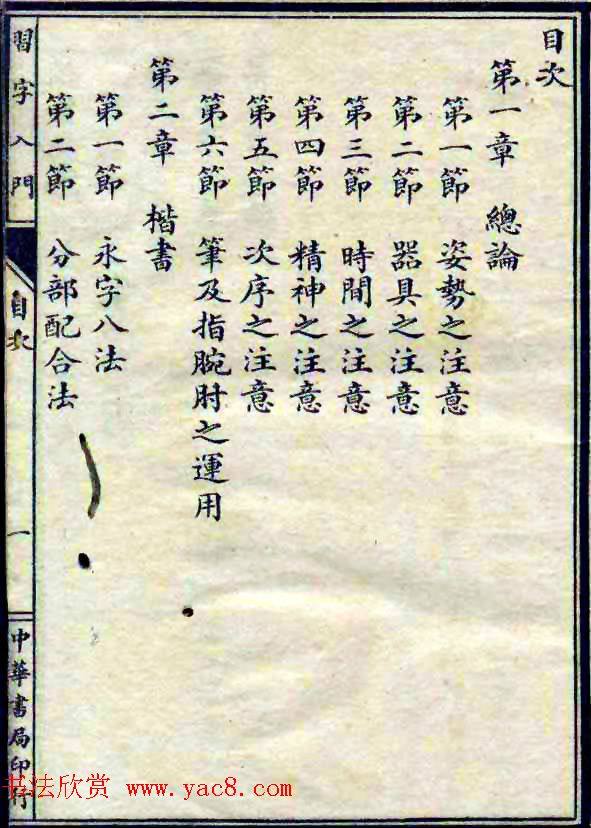 目次
第一章　總論
第一節　姿勢之注意
第二節　器具之注意
第三節　時間之注意
第四節　精神之注意
第五節　次序之注意
第六節　筆及指腕肘之運用
第二章　楷書
第一節　永字八法
第二節　分部配合法
習字入門
目次
一
中華書局印行
书法欣赏 www.yac8.com